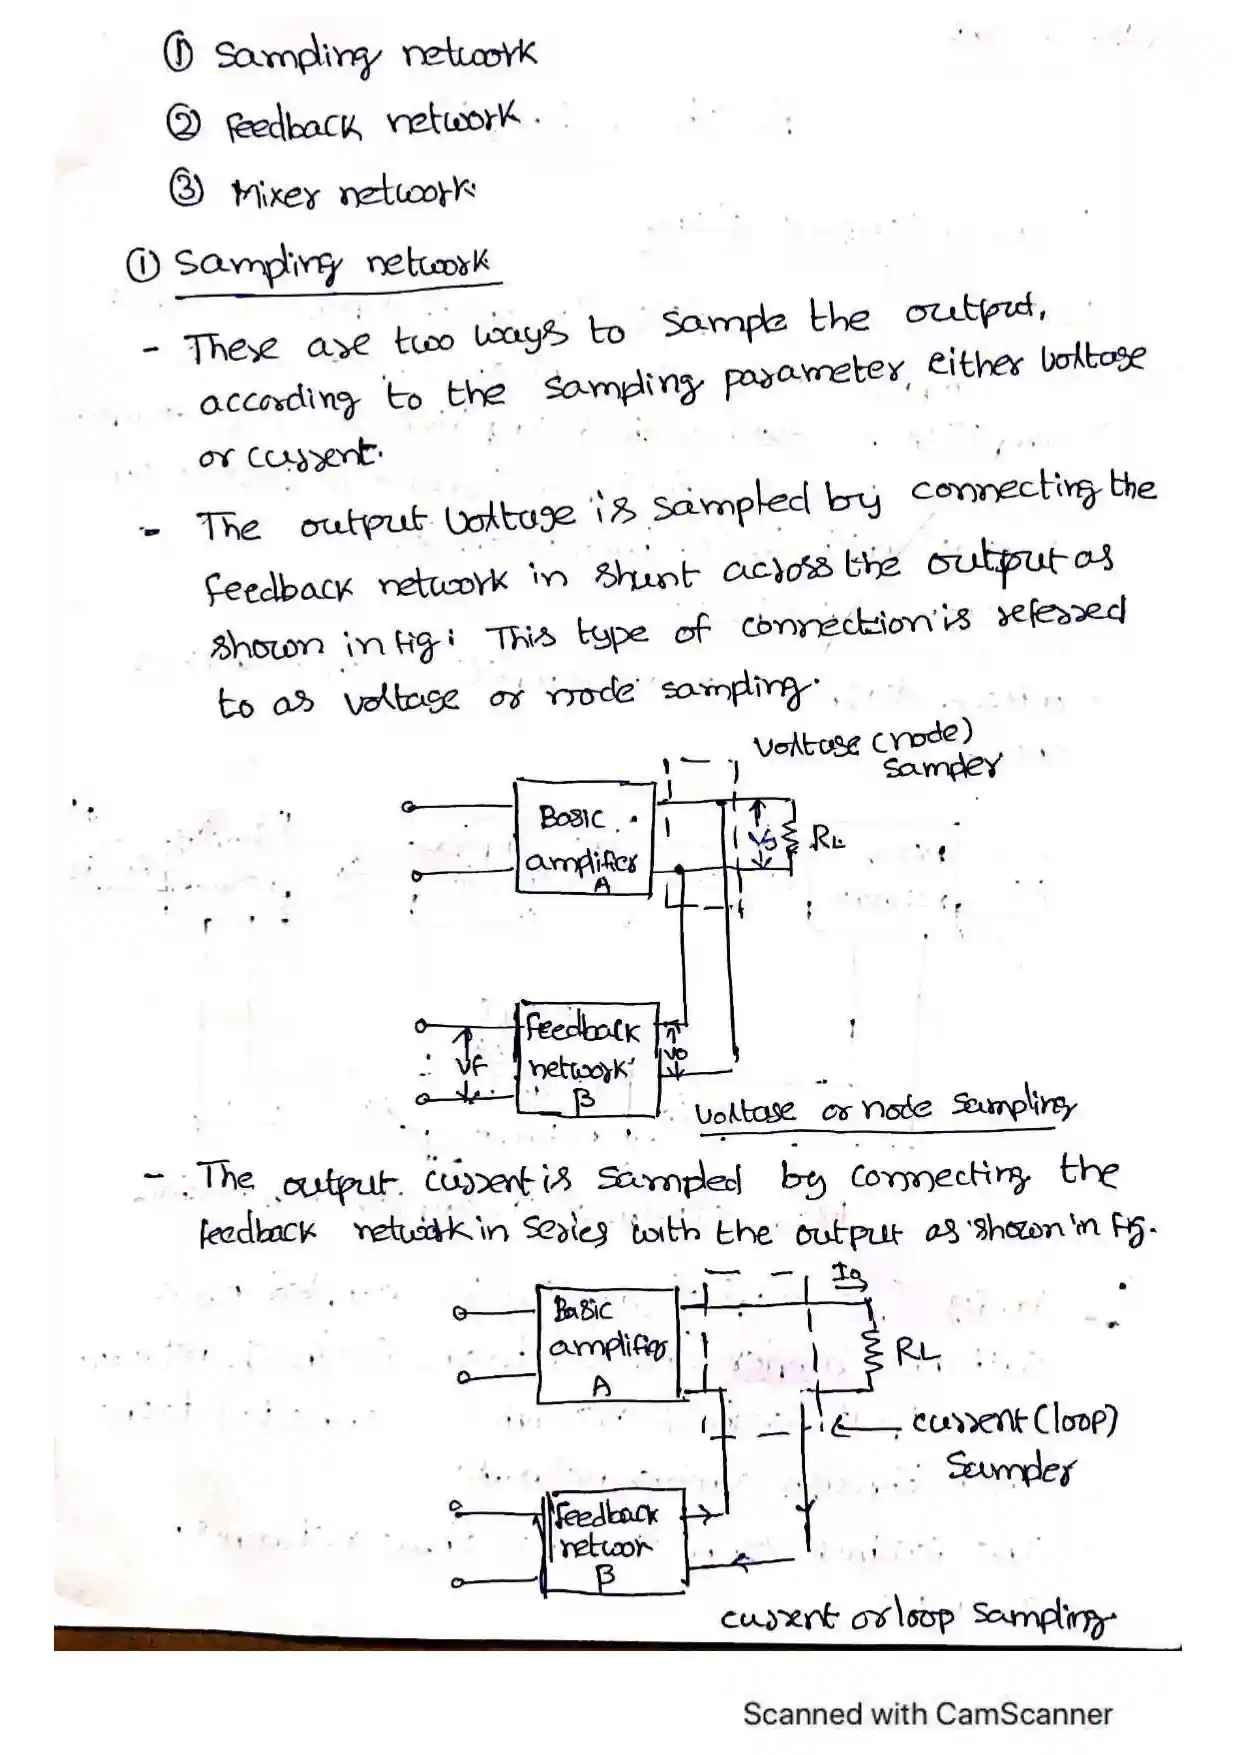 ① Sampling network
② Feedback network.
③ Mixer network
① Sampling network
- These are two ways to sample the output,
according to the sampling parameter, either voltage
or current.
- The output voltage is sampled by connecting the
feedback network in shunt across the output as
shown in fig: This type of connection is referred
to as voltage or node sampling.
Voltage (node)
Sampler
Basic
amplifier
A
RL
Feedback
network
β
Vf
Vo
voltage or node sampling
- The output current is sampled by connecting the
feedback network in series with the output as shown in fig.
Io
Basic
amplifier
A
RL
current (loop)
Sampler
Feedback
networ
β
current or loop sampling.
Scanned with CamScanner